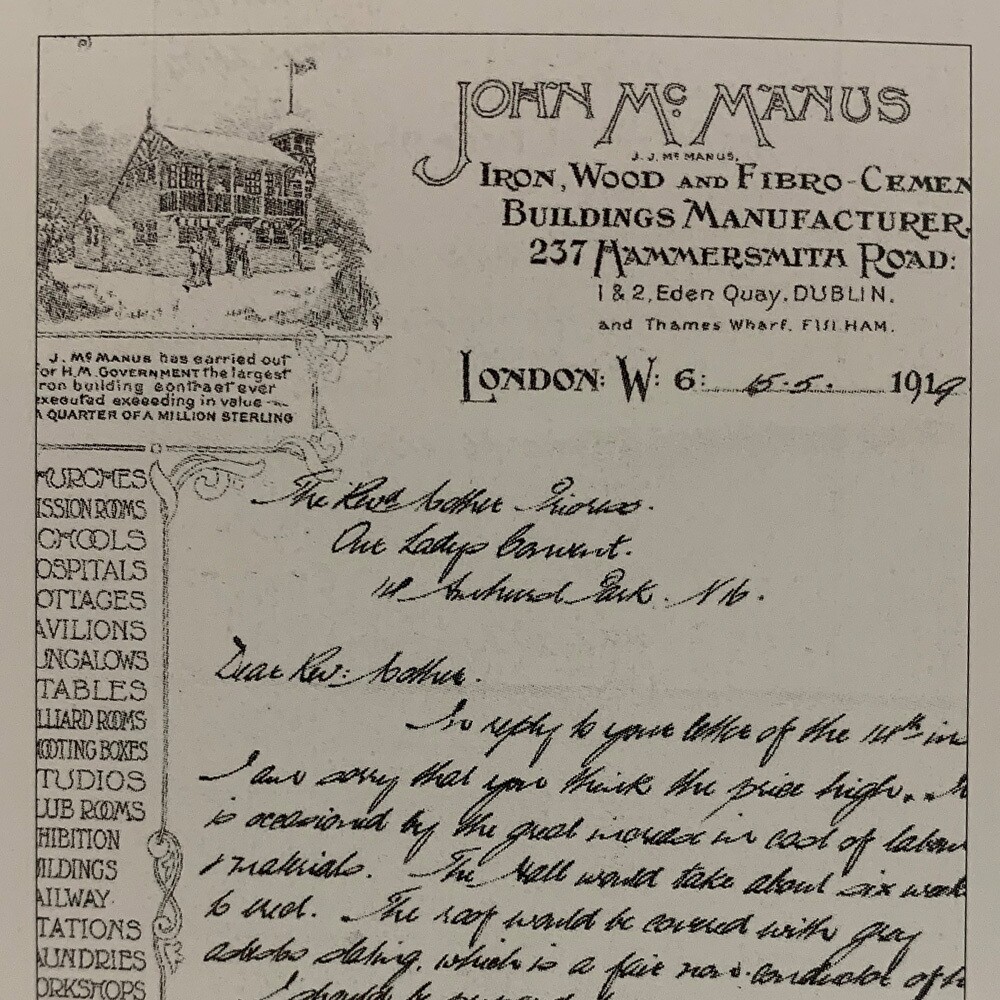 JOHN Mc MANUS
J. J. Mc MANUS,
IRON, WOOD AND FIBRO-CEMEN
BUILDINGS MANUFACTURER,
237 HAMMERSMITH ROAD:
1 & 2, Eden Quay, DUBLIN.
and Thames Wharf. FULHAM.
LONDON: W: 6: 15.5. 1919
J. McMANUS has carried out
or H.M. GOVERNMENT the largest
ron building contract ever
executed exceeding in value
A QUARTER OF A MILLION STERLING
HURCHES
ISSION ROOMS
CHOOLS
OSPITALS
OTTAGES
AVILIONS
UNGALOWS
TABLES
LLIARD ROOMS
HOOTING BOXES
TUDIOS
LUB ROOMS
HIBITION
ILDINGS
AILWAY
TATIONS
AUNDRIES
ORKSHOPS
The Revd Mother Prioress.
Our Ladys Convent.
14 Amhurst Park. N16.
Dear Rev: Mother.
In reply to your letter of the 14th in
I am sorry that you think the price high. It
is occasioned by the great increase in cost of labour
& materials. The Hall would take about six week
to erect. The roof would be covered with grey
asbestos slating, which is a fair non-conductor of h
I should be